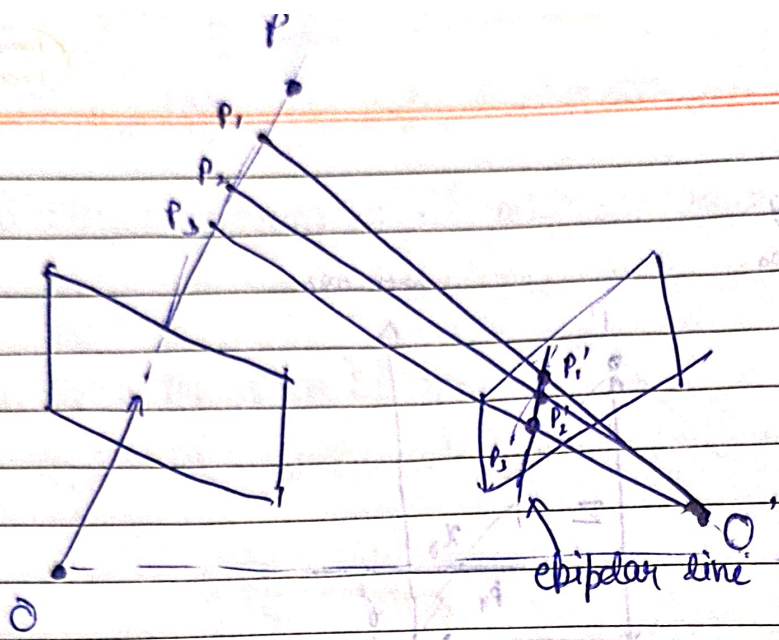 P
P₁
P₂
P₃
P₁'
P₂'
P₃
O'
epipolar line
O